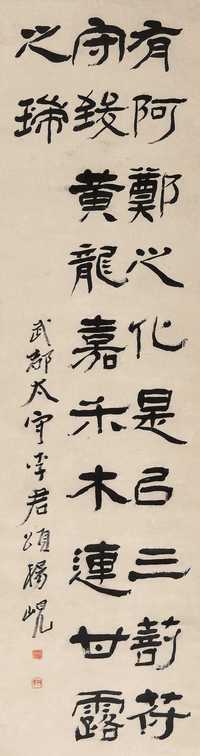 有阿鄭之化是以三蒞苻
守致黄龍嘉禾木連甘露
之瑞
武都太守李君頌楊峴